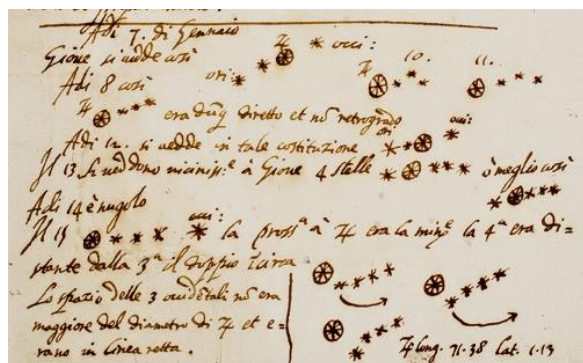 Adi 7. di Gennaio
Giove si vedde così ori: ♃ occi:
Adi 8 così ♃ 10. 11.
♃ era dūq diretto et nō retrogrado
Adi 12. si vedde in tale costituzione ori occi:
Il 13 si veddono viciniss.e à Giove 4 stelle ò meglio così
Adi 14 è nugolo
Il 15 occi: la pross.a à ♃ era la min.e la 4.a era di=
stante dalla 3.a il doppio circa
Lo spazio delle 3 occidētali nō era
maggiore del diametro di ♃ et e=
rano in linea retta.
♃ long. 71.38 lat. 1.13